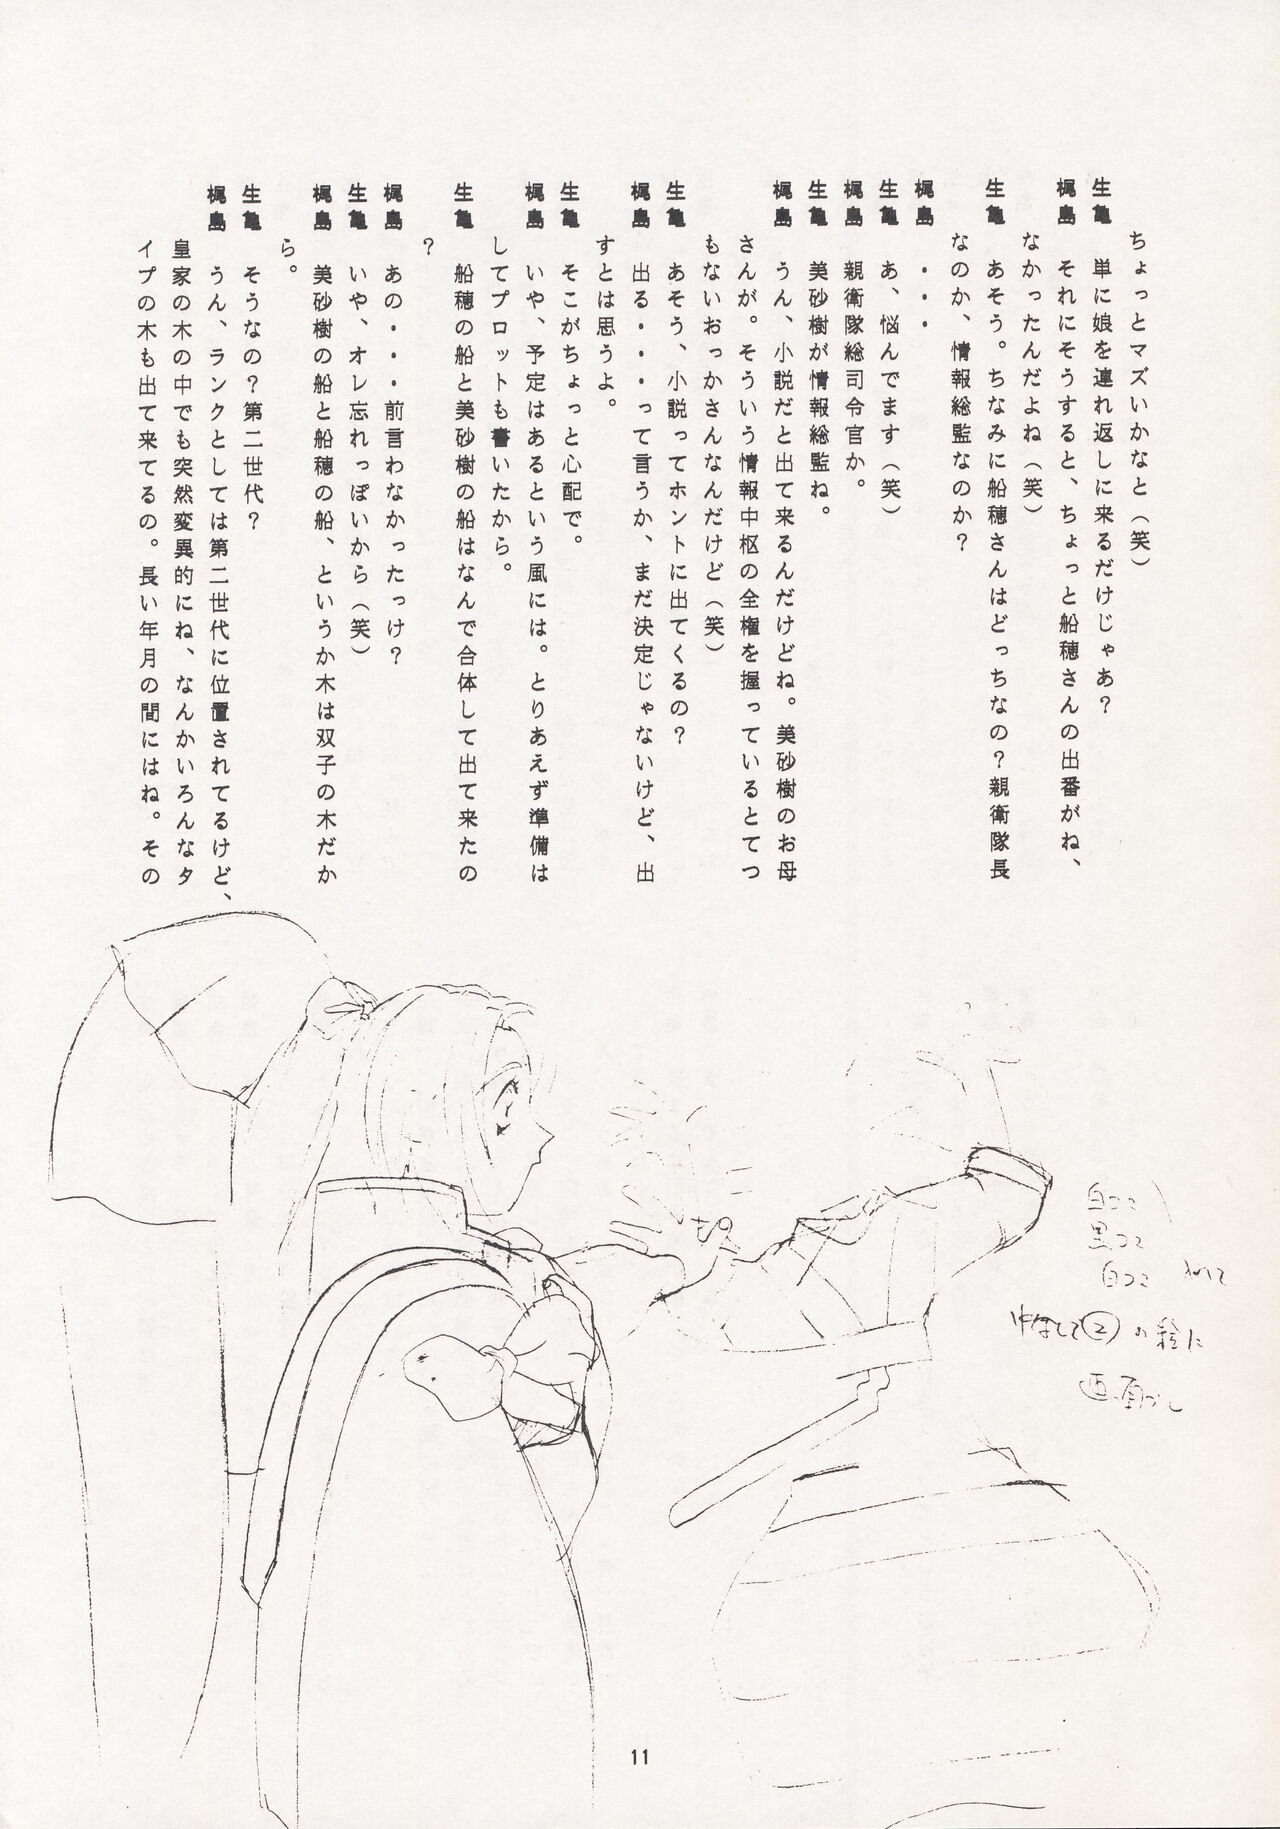 ちょっとマズいかなと（笑）
生亀　単に娘を連れ返しに来るだけじゃあ？
梶島　それにそうすると、ちょっと船穂さんの出番がね、
なかったんだよね（笑）
生亀　あそう。ちなみに船穂さんはどっちなの？親衛隊長
なのか、情報総監なのか？
梶島　・・・
生亀　あ、悩んでます（笑）
梶島　親衛隊総司令官か。
生亀　美砂樹が情報総監ね。
梶島　うん、小説だと出て来るんだけどね。美砂樹のお母
さんが。そういう情報中枢の全権を握っているとてつ
もないおっかさんなんだけど（笑）
生亀　あそう、小説ってホントに出てくるの？
梶島　出る・・・って言うか、まだ決定じゃないけど、出
すとは思うよ。
生亀　そこがちょっと心配で。
梶島　いや、予定はあるという風には。とりあえず準備は
してプロットも書いたから。
生亀　船穂の船と美砂樹の船はなんで合体して出て来たの
？
梶島　あの・・・前言わなかったっけ？
生亀　いや、オレ忘れっぽいから（笑）
梶島　美砂樹の船と船穂の船、というか木は双子の木だか
ら。
生亀　そうなの？第二世代？
梶島　うん、ランクとしては第二世代に位置されてるけど、
皇家の木の中でも突然変異的にね、なんかいろんなタ
イプの木も出て来てるの。長い年月の間にはね。その
白コマ
黒コマ
白コマ
②の絵に
11